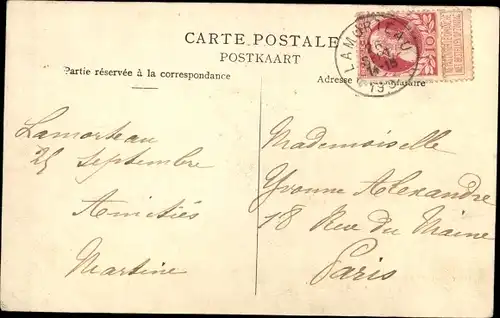 CARTE POSTALE
POSTKAART
Partie réservée à la correspondance
Adresse
LAMORTEAU
10
Lamorteau
25 Septembre
Amitiés
Martine
Mademoiselle
Yvonne Alexandre
18 Rue du Maine
Paris